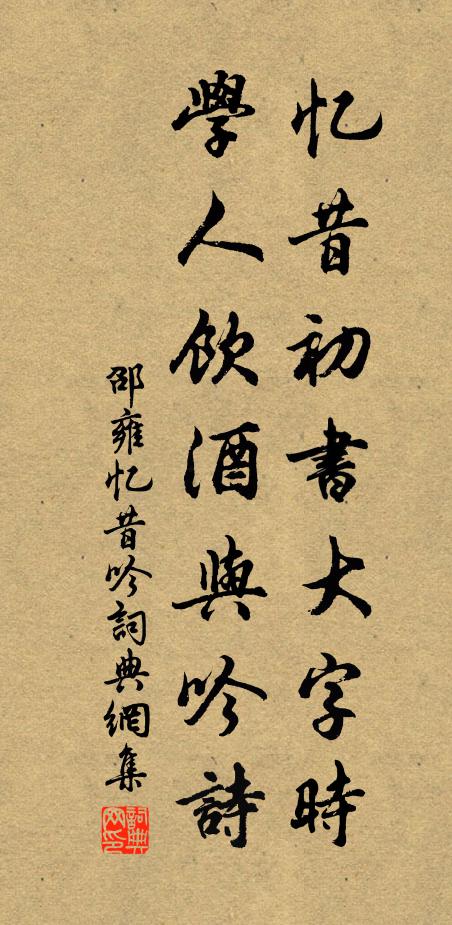 忆昔初書大字時
學人飲酒與吟詩
邵雍忆昔吟詞典網集
詞典
网印